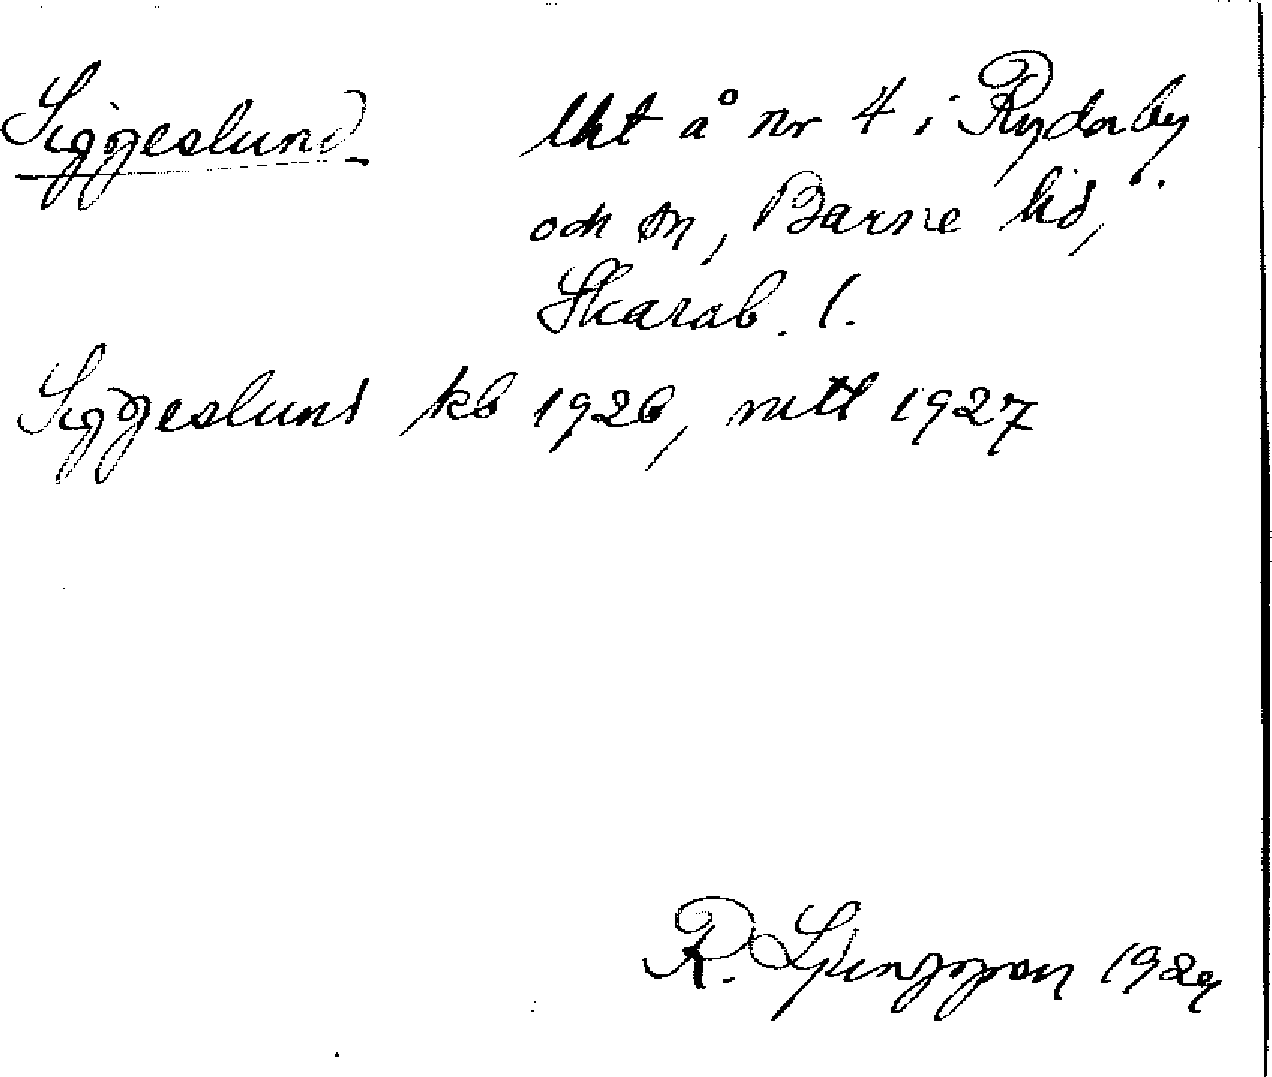 Siggeslund lht å nr 4 i Ryda by
och sn, Barne hd,
Skarab. l.
Siggeslund kb 1926, mtl 1927
R. Ljunggren 1929